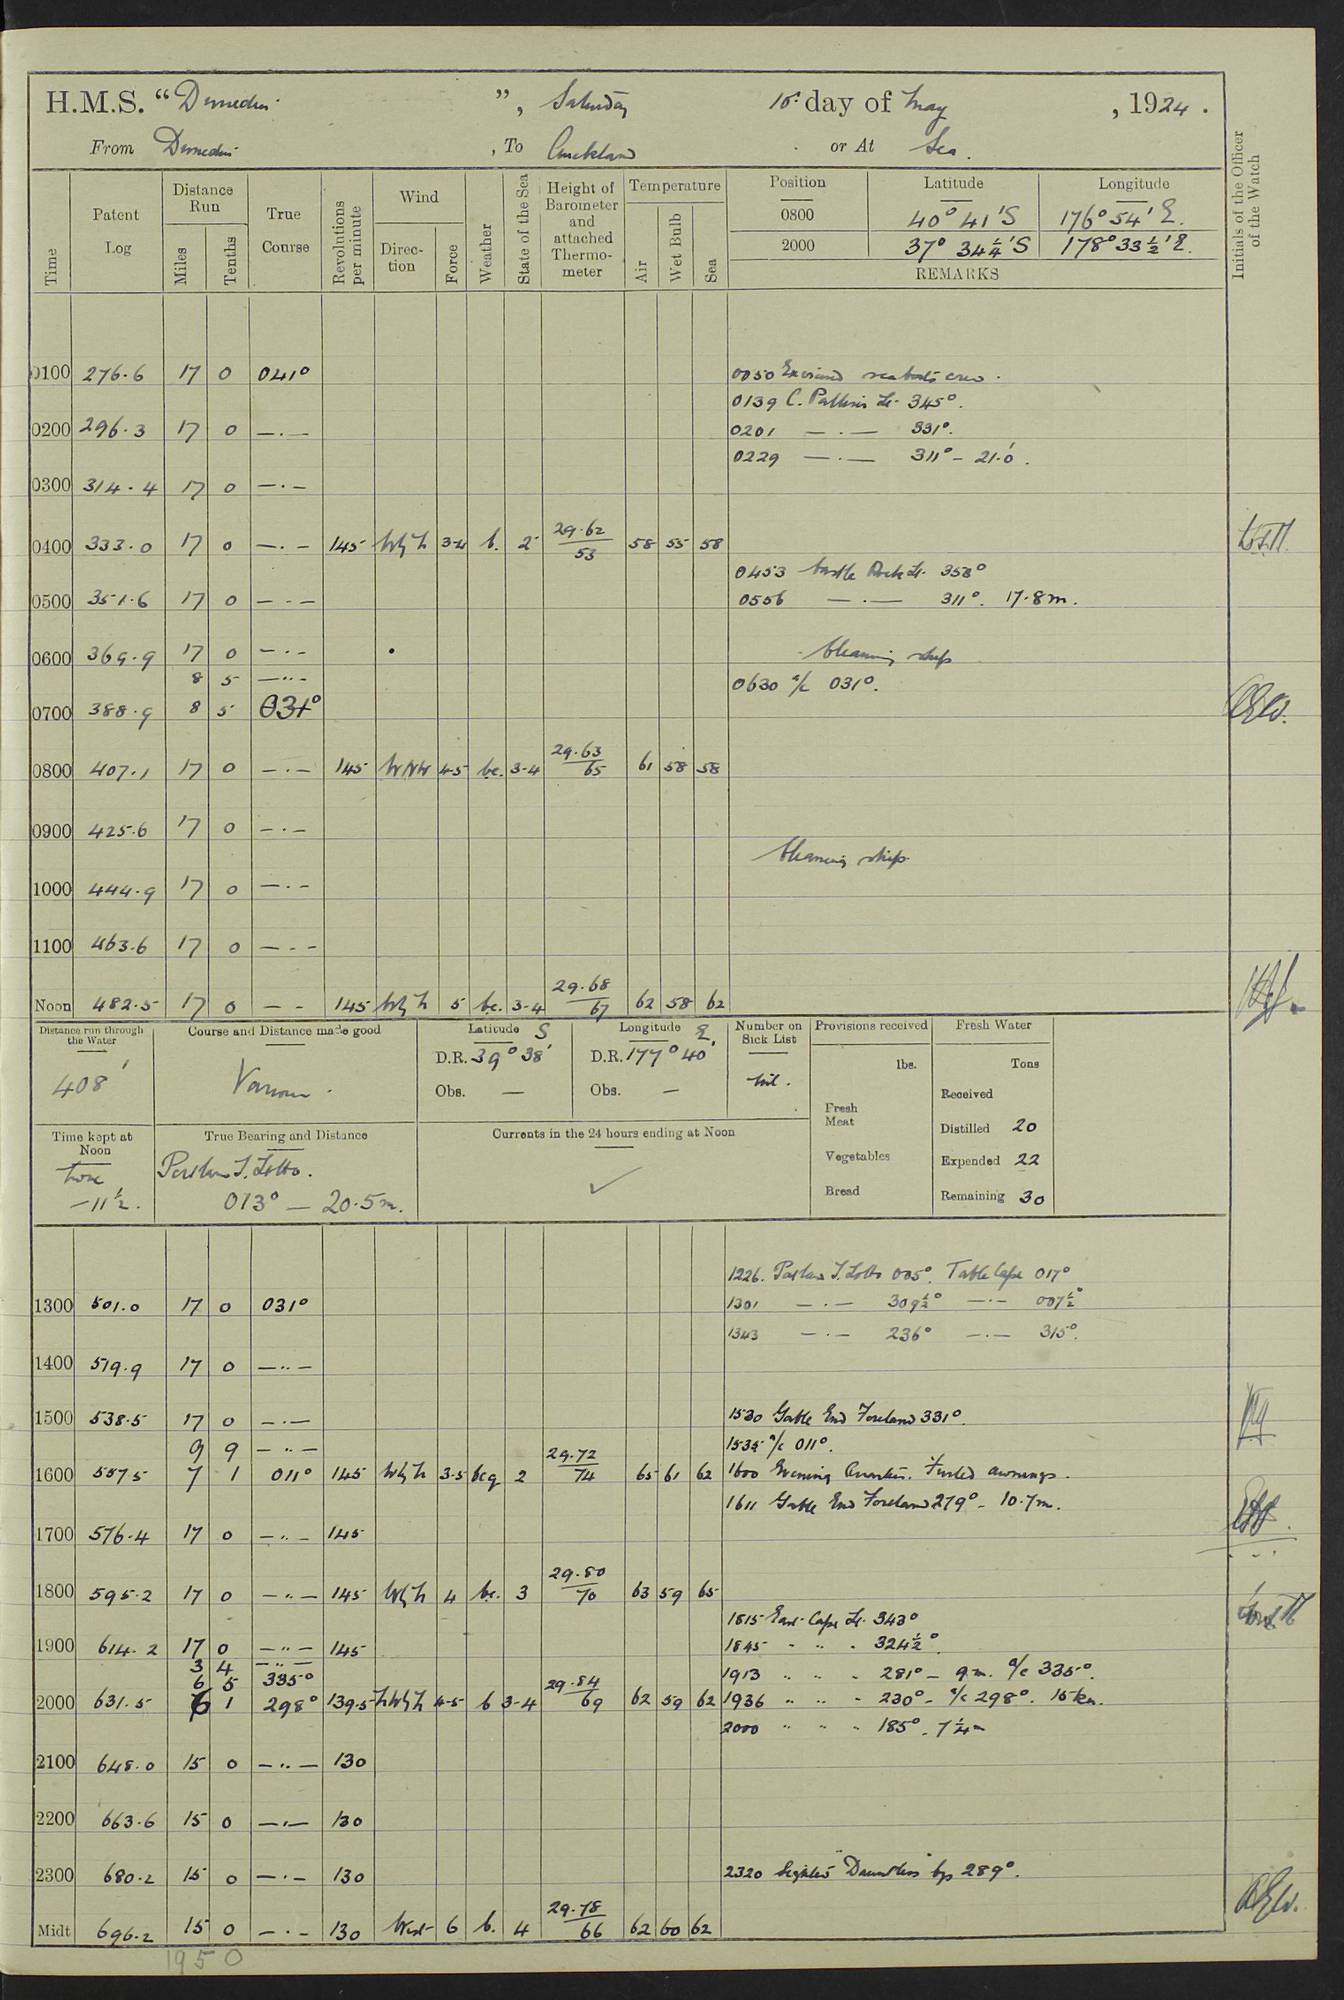 H.M.S. “ ”, Saturday 10th day of May, 1924.
From , To Auckland or At Sea.
Time Patent Log Distance Run Miles Tenths True Course Revolutions per minute Wind Direction Force Weather State of the Sea Height of Barometer and attached Thermometer Temperature Air Wet Bulb Sea Position Latitude Longitude Initials of the Officer of the Watch
0800 40° 41' S 176° 54' E.
2000 37° 34¼' S 178° 33½' E.
REMARKS
0100 276.6 17 0 041° 0050 Exercised sea boats crew.
0139 C. Palliser Lt. 345°.
0200 296.3 17 0 —.— 0201 —.— 331°.
0229 —.— 311° – 21.0'.
0300 314.4 17 0 —.—
0400 333.0 17 0 —.— 145 WbyN 3-4 b. 2 29.62/53 58 55 58
0453 Castle Rock Lt. 358°
0500 351.6 17 0 —.— 0556 —.— 311°. 17.8m.
0600 369.9 17 0 —.— Cleaning ship
8 5 —..— 0630 a/c 031°.
0700 388.9 8 5 031°
0800 407.1 17 0 —.— 145 WNW 4-5 bc. 3-4 29.63/65 61 58 58
0900 425.6 17 0 —.—
Cleaning ship.
1000 444.9 17 0 —.—
1100 463.6 17 0 —.—
Noon 482.5 17 0 — — 145 WbyN 5 bc. 3-4 29.68/67 62 58 62
Distance run through the Water 408'
Course and Distance made good Various.
Latitude S D.R. 39° 38' Obs. —
Longitude E. D.R. 177° 40' Obs. —
Number on Sick List Nil.
Provisions received lbs. Fresh Meat Vegetables Bread
Fresh Water Tons Received
Distilled 20
Expended 22
Remaining 30
Time kept at Noon Zone –11½.
True Bearing and Distance Portland I. Lt. Ho. 013° — 20.5m.
Currents in the 24 hours ending at Noon ✓
1226. Portland I. Lt Ho 005°. Table Cape 017°
1300 501.0 17 0 031° 1301 —.— 309½° —.— 007½°
1343 —.— 236° —.— 315°.
1400 519.9 17 0 —..—
1500 538.5 17 0 —.— 1530 Gable End Foreland 331°.
9 9 —..— 1535 a/c 011°.
1600 557.5 7 1 011° 145 WbyN 3-5 bcq 2 29.72/74 65 61 62 1600 Evening Quarters. Furled awnings.
1611 Gable End Foreland 279° – 10.7m.
1700 576.4 17 0 —..— 145
1800 595.2 17 0 —..— 145 WbyN 4 bc. 3 29.80/70 63 59 65
1815 East Cape Lt. 343°
1900 614.2 17 0 —..— 145 1845 " " " 324½°.
3 4 —..—
6 5 335° 1913 " " " 281° – 9m. a/c 335°.
2000 631.5 6 1 298° 139.5 NWbyN 4-5 b 3-4 29.84/69 62 59 62 1936 " " " 230° – a/c 298°. 15kn.
2000 " " " 185°. 7¼m
2100 648.0 15 0 —..— 130
2200 663.6 15 0 —.— 130
2300 680.2 15 0 —.— 130 2320 Sighted "Dauntless" bg 289°.
Midt 696.2 15 0 —.— 130 West 6 b. 4 29.78/66 62 60 62
1950